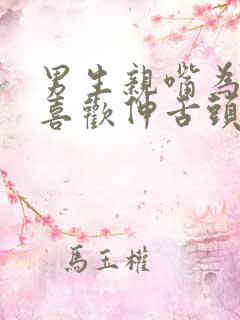 男生親嘴為
喜歡伸舌頭
馬玉權